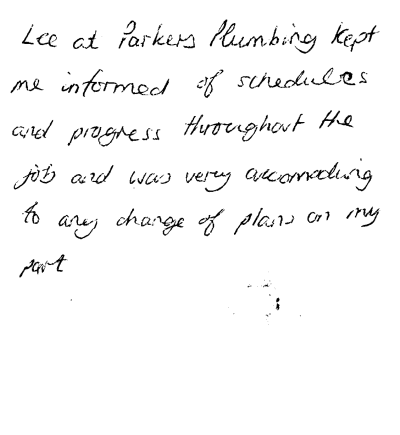 Lee at Parkers Plumbing kept
me informed of schedules
and progress throughout the
job and was very accomoding
to any change of plans on my
part